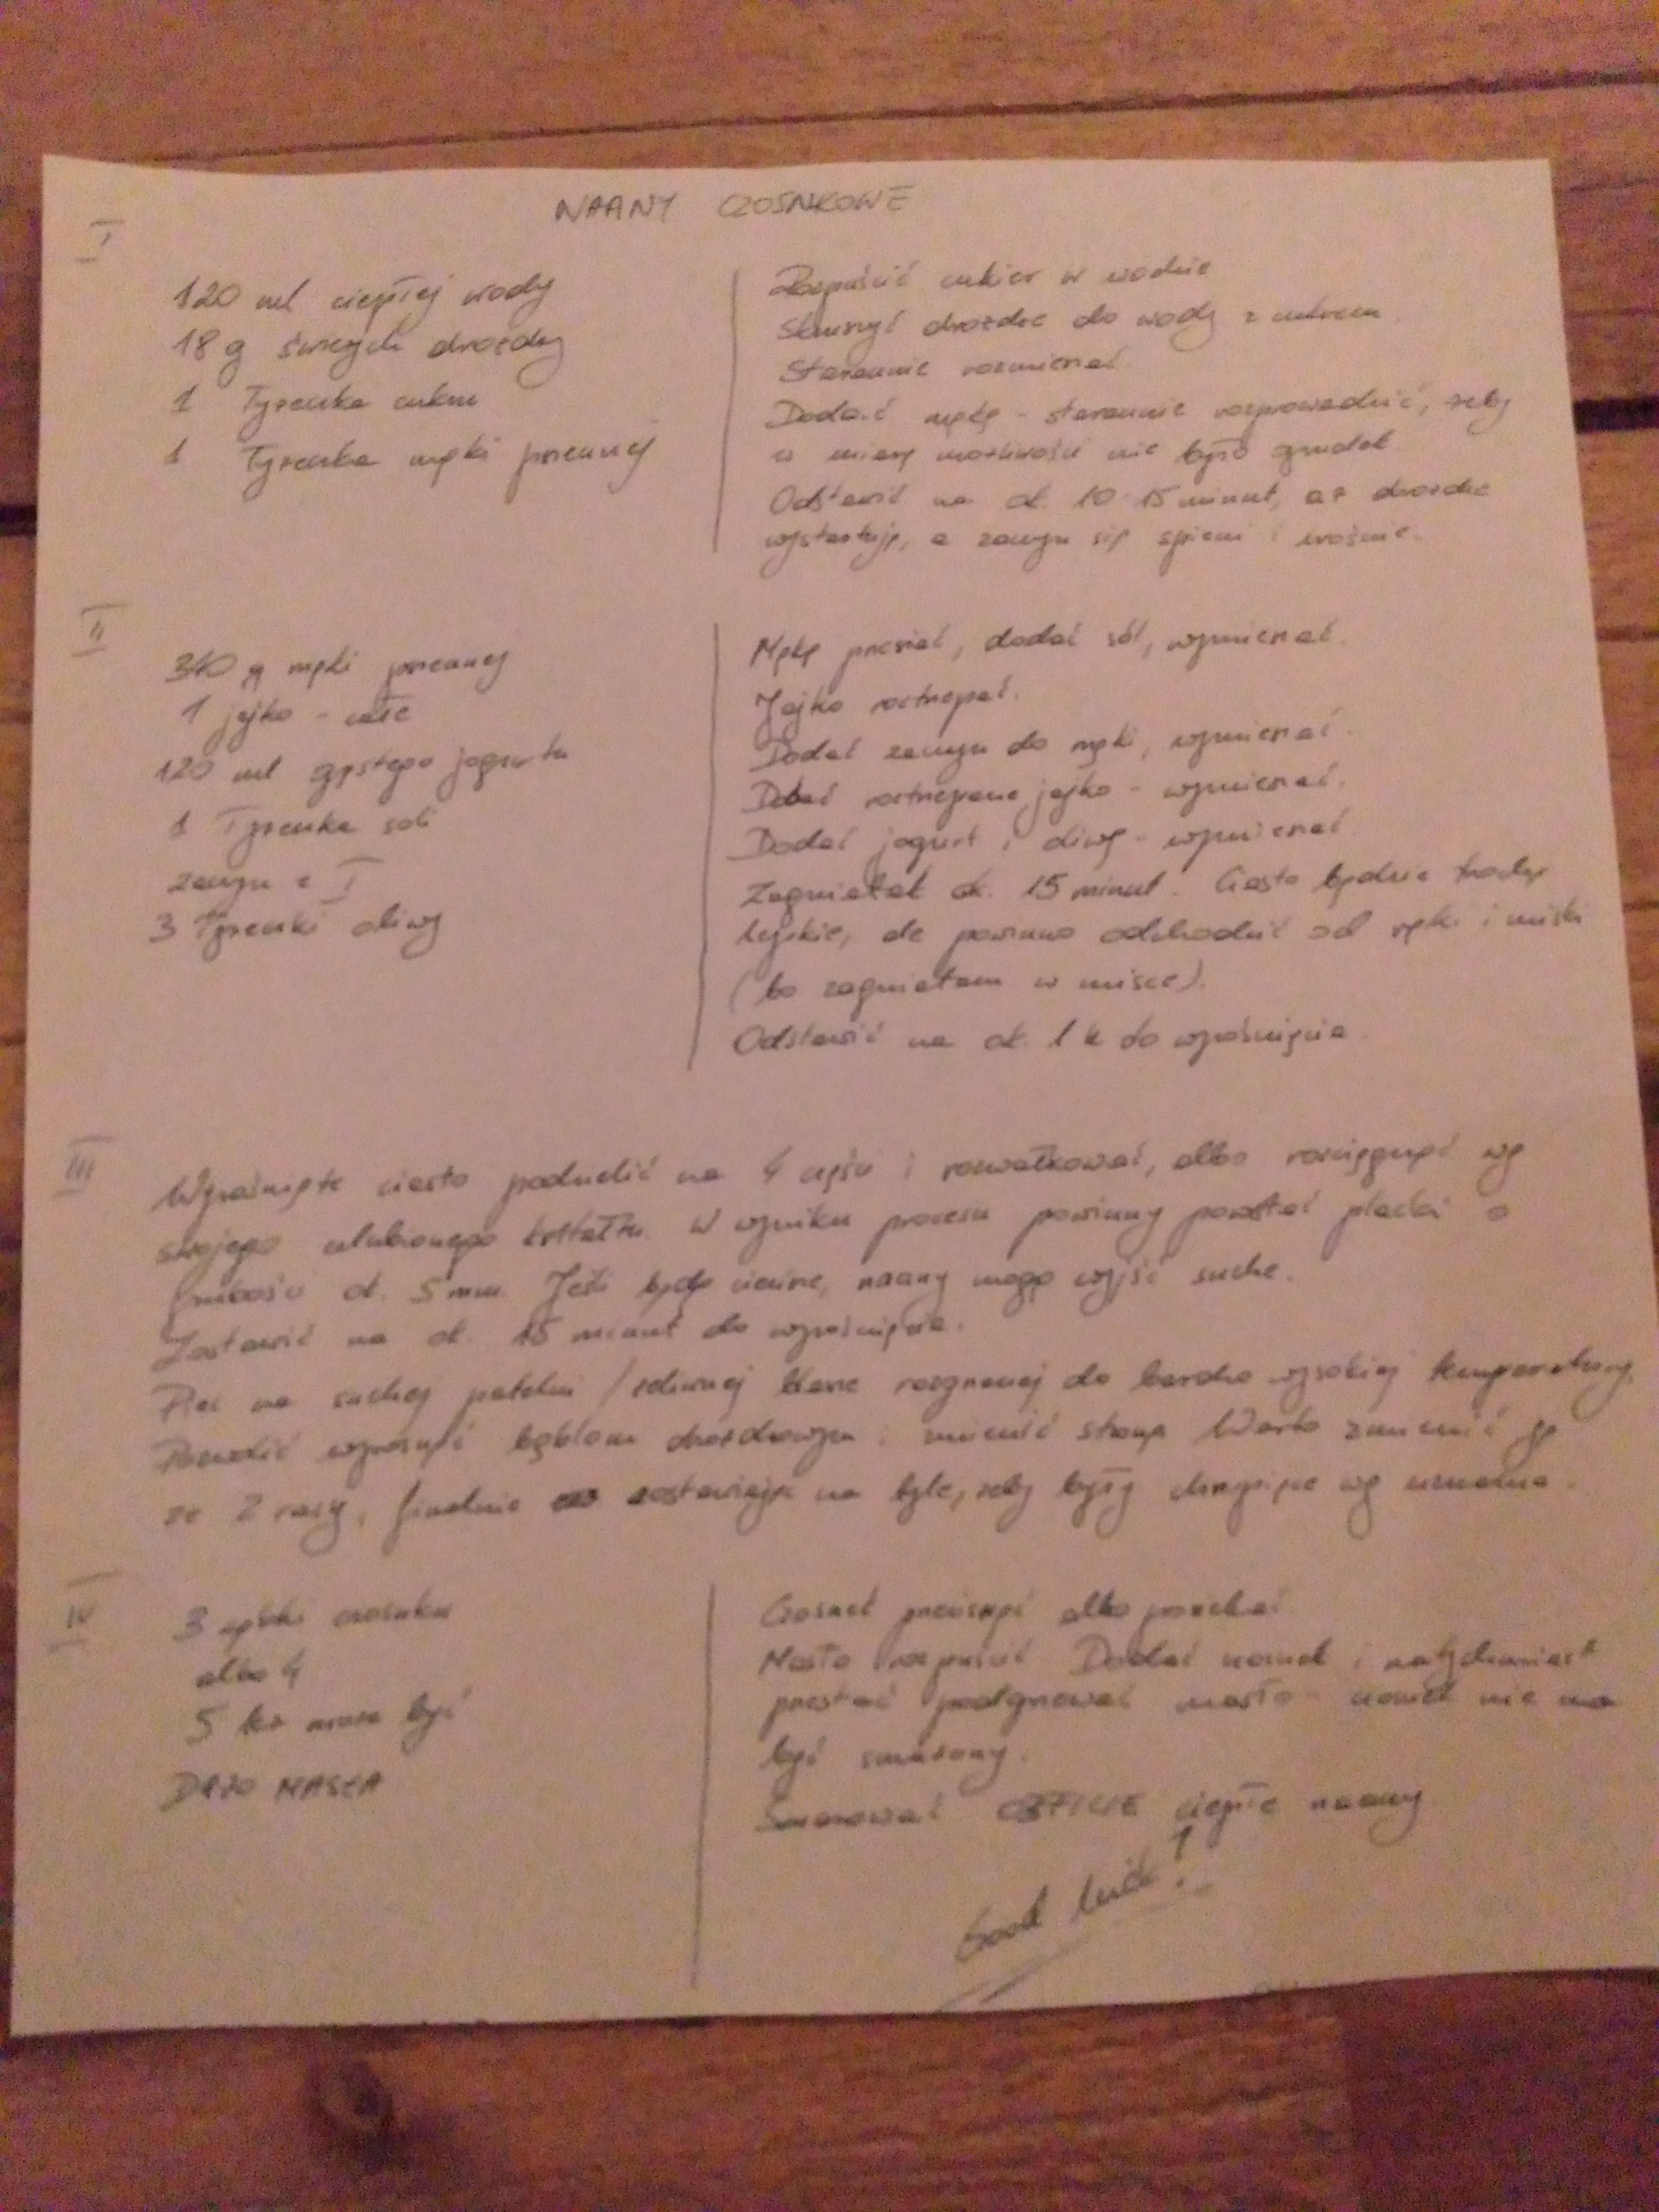 NAANY CZOSNKOWE
I
120 ml ciepłej wody
18 g świeżych drożdży
1 łyżeczka cukru
1 łyżeczka mąki pszennej
Rozpuścić cukier w wodzie
Skruszyć drożdże do wody z cukrem
Starannie rozmieszać
Dodać mąkę - starannie rozprowadzić, żeby
w miarę możliwości nie było grudek
Odstawić na ok. 10-15 minut, aż drożdże
wystartują, a zaczyn się spieni i urośnie.
II
340 g mąki pszennej
1 jajko - całe
120 ml gęstego jogurtu
1 łyżeczka soli
zaczyn z I
3 łyżeczki oliwy
Mąkę przesiać, dodać sól, wymieszać.
Jajko roztrzepać.
Dodać zaczyn do mąki, wymieszać.
Dodać roztrzepane jajko - wymieszać.
Dodać jogurt i oliwę - wymieszać.
Zagniatać ok. 15 minut. Ciasto będzie trochę
lepkie, ale powinno odchodzić od ręki i miski
(bo zagniatam w misce).
Odstawić na ok. 1 h do wyrośnięcia.
III
Wyrośnięte ciasto podzielić na 4 części i rozwałkować, albo rozciągnąć wg
swojego ulubionego kształtu. W wyniku procesu powinny powstać placki o
grubości ok. 5 mm. Jeśli będą cieńsze, naany mogą wyjść suche.
Zostawić na ok. 15 minut do wyrośnięcia.
Piec na suchej patelni / żeliwnej blasze rozgrzanej do bardzo wysokiej temperatury.
Pozwolić wyrosnąć bąblom drożdżowym i zmienić stronę. Warto zmienić ją
ze 2 razy, finalnie zostawiając na tyle, żeby były chrupiące wg uznania.
IV
3 ząbki czosnku
albo 4
5 też może być
DUŻO MASŁA
Czosnek przecisnąć albo posiekać
Masło rozpuścić. Dodać czosnek i natychmiast
przestać podgrzewać masło - czosnek nie ma
być smażony.
Smarować OBFICIE ciepłe naany
Good luck!